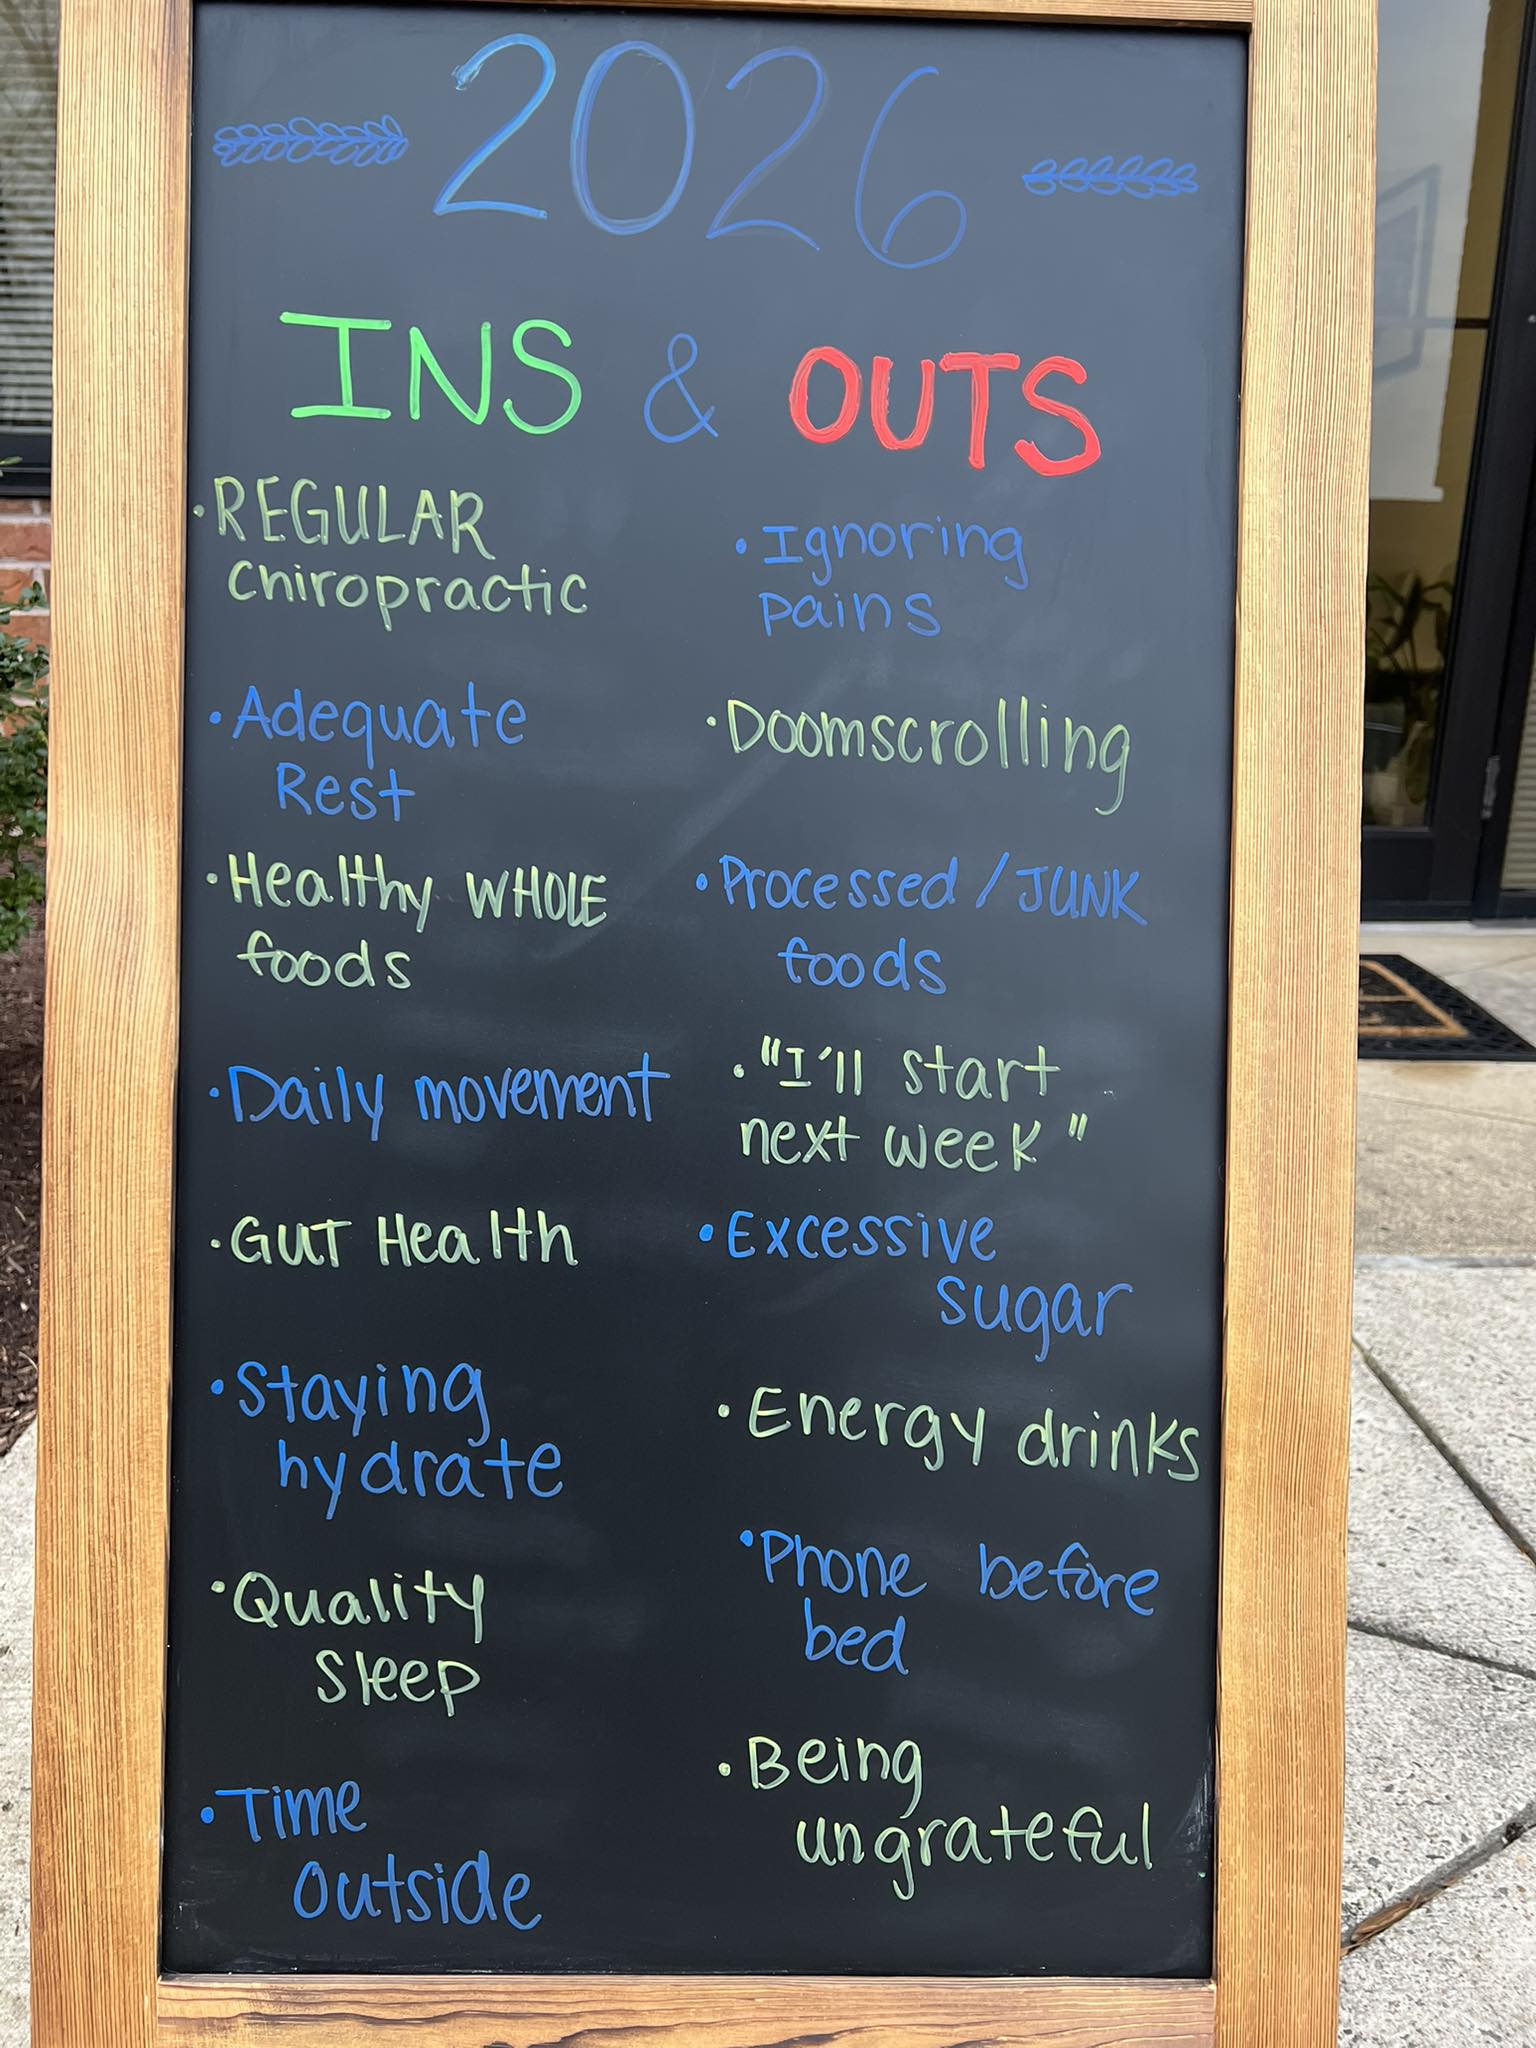 2026
INS & OUTS
· REGULAR
chiropractic
· Adequate
Rest
· Healthy WHOLE
foods
· Daily movement
· GUT Health
· Staying
hydrate
· Quality
sleep
· Time
outside
· Ignoring
pains
· Doomscrolling
· Processed / JUNK
foods
· "I'll start
next week"
· Excessive
sugar
· Energy drinks
· Phone before
bed
· Being
ungrateful